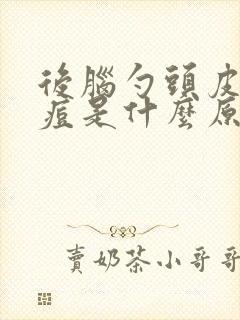 後腦勺頭皮
痘是什麼原
賣奶茶小哥哥